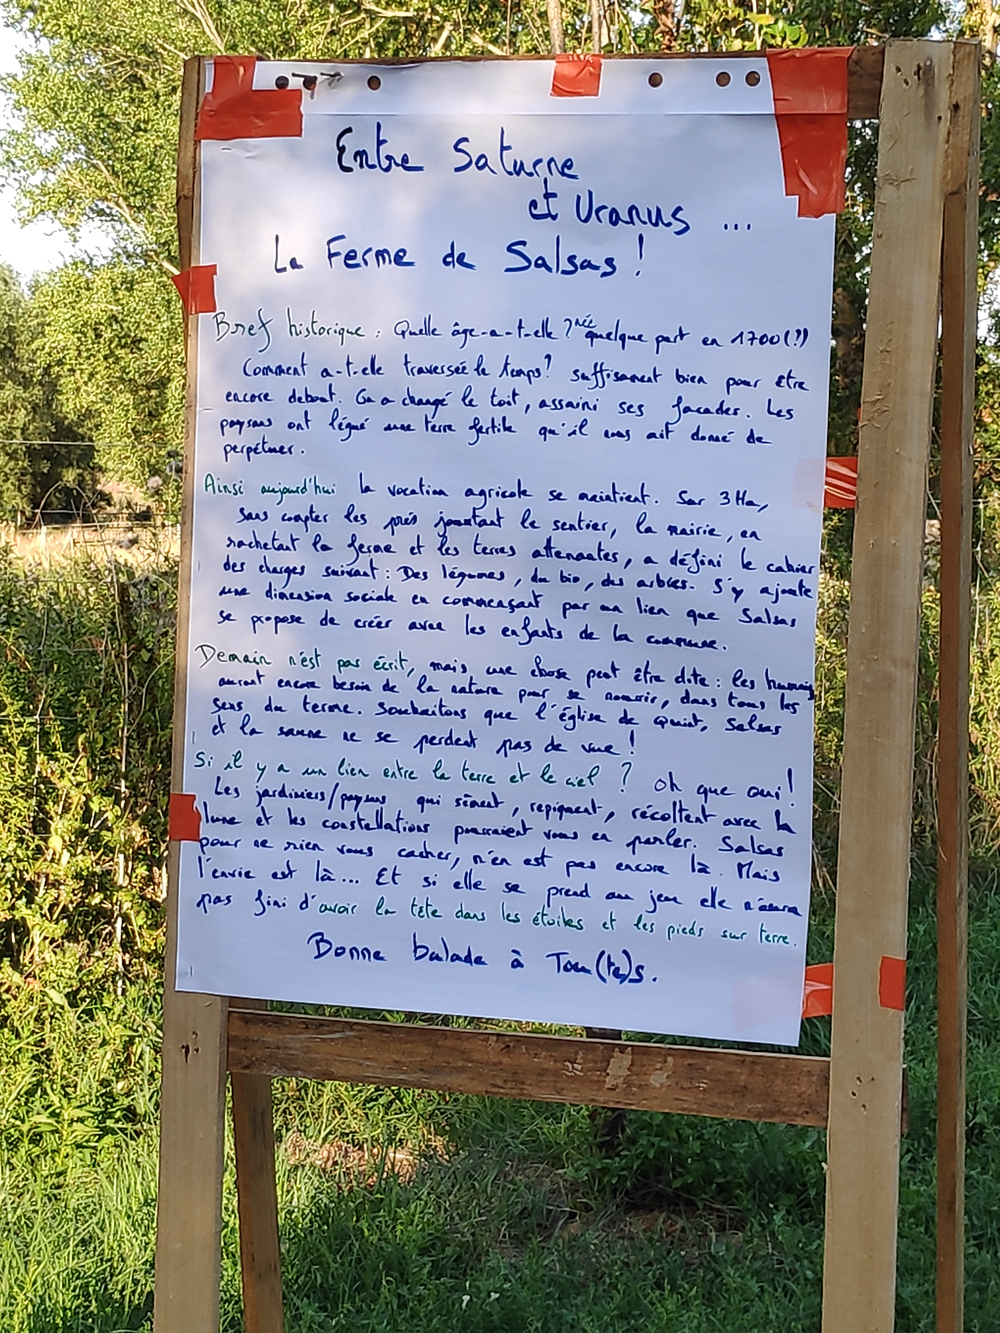 Entre Saturne
et Uranus ...
La Ferme de Salsas !
Bref historique : Quelle âge-a-t-elle ? née quelque part en 1700 (?)
Comment a-t-elle traversée le temps ? Suffisament bien pour être
encore debout. On a changé le toit, assaini ses façades. Les
paysans ont légué une terre fertile qu'il nous ait donné de
perpétuer.
Ainsi aujourd'hui la vocation agricole se maintient. Sur 3 Ha,
sans compter les prés jouxtant le sentier, la mairie, en
rachetant la ferme et les terres attenantes, a défini le cahier
des charges suivant : Des légumes, du bio, des arbres. S'y ajoute
une dimension sociale en commençant par un lien que Salsas
se propose de créer avec les enfants de la commune.
Demain n'est pas écrit, mais une chose peut être dite : les humains
auront encore besoin de la nature pour se nourrir, dans tous les
sens du terme. Souhaitons que l'église de Quint, Salsas
et la saune ne se perdent pas de vue !
Si il y a un lien entre la terre et le ciel ? Oh que oui !
Les jardiniers/paysans qui sèment, repiquent, récoltent avec la
lune et les constellations pourraient vous en parler. Salsas
pour ne rien vous cacher, n'en est pas encore là. Mais
l'envie est là ... Et si elle se prend au jeu elle n'aura
pas fini d'avoir la tête dans les étoiles et les pieds sur terre.
Bonne balade à Tou(te)s.